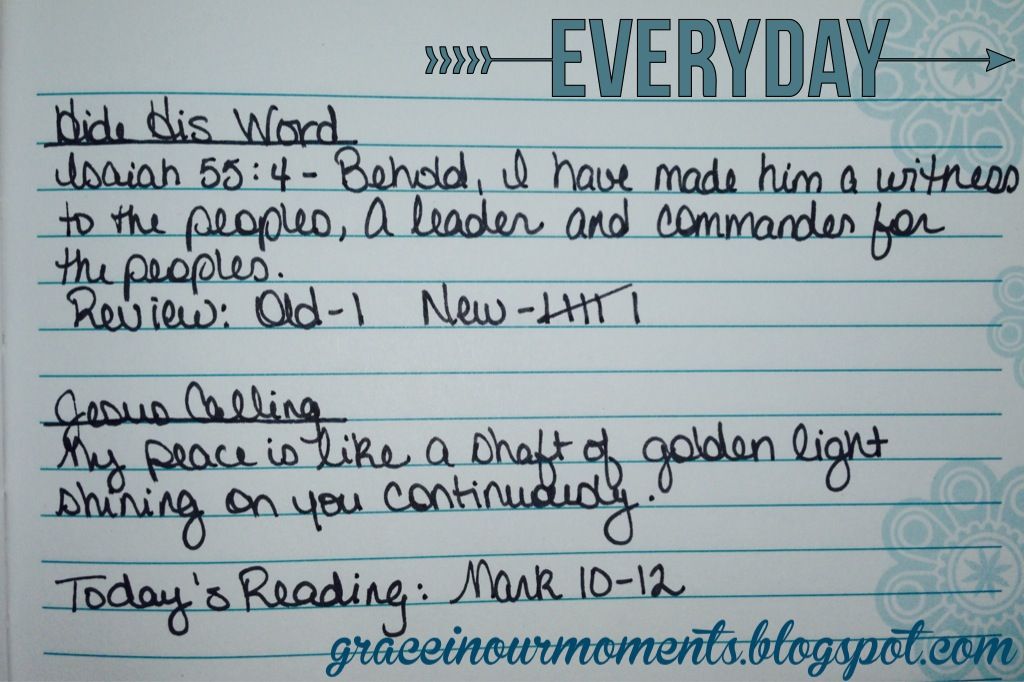 EVERYDAY
Hide His Word
Isaiah 55:4 - Behold, I have made him a witness
to the peoples, a leader and commander for
the peoples.
Review: Old-1 New-
Jesus Calling
My peace is like a shaft of golden light
shining on you continuously.
Today's Reading: Mark 10-12
graceinourmoments.blogspot.com